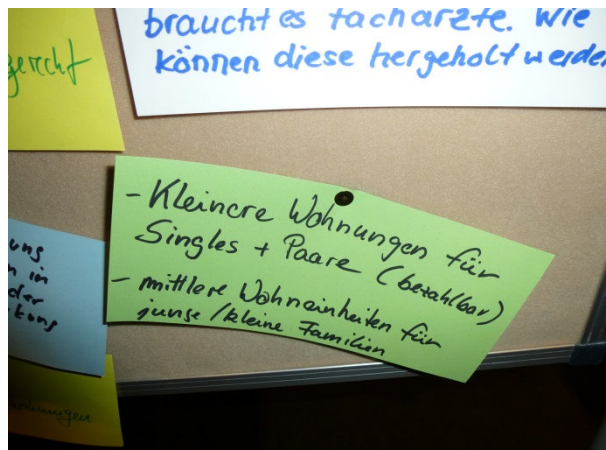 braucht es fachärzte. Wie
können diese hergeholt werden
gerecht
- Kleinere Wohnungen für
Singles + Paare (bezahlbar)
- mittlere Wohneinheiten für
junge / kleine Familien
ung
in
der
kung
wohnungen